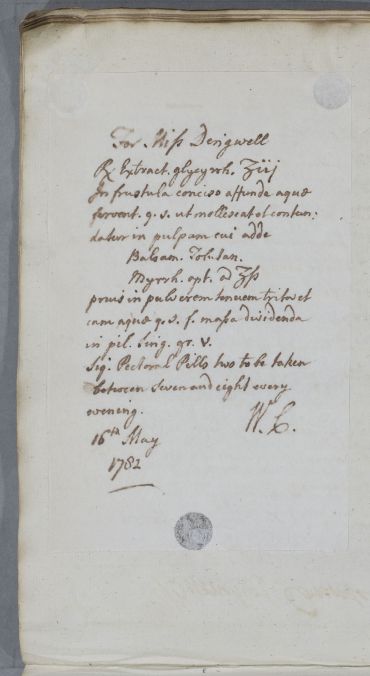 For Miſs Dengwell
℞ Extract. glycyrrh. ʒiij
In frustula conciso affunde aquæ
fervent. q. s. ut mollescat et contun:
datur in pulpam cui adde
Balsam. Tolutan.
Myrrh. opt. a ʒſs
prius in pulverem tenuem trita et
cum aquæ q. s. f. maſsa dividenda
in pil. sing. gr. v.
Sig. Pectoral Pills two to be taken
between Seven and eight every
evening.
W. C.
16th May
1782